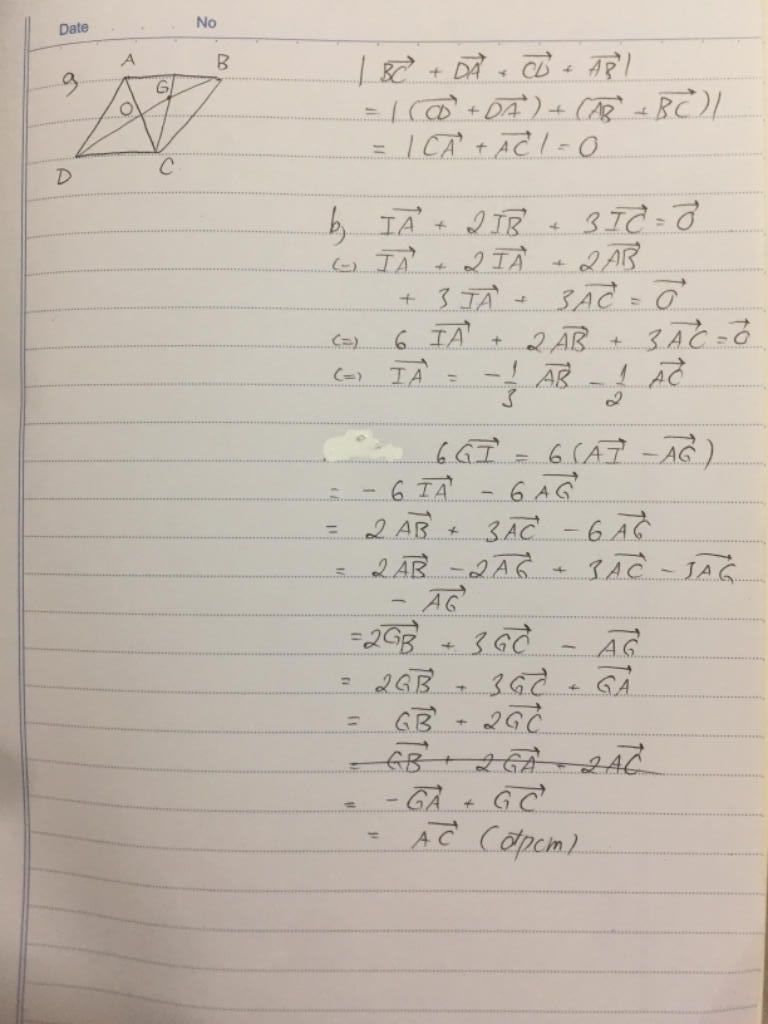 Date No
a,
A B
G
O
D C
|BC→ + DA→ + CD→ + AB→|
= |(CD→ + DA→) + (AB→ + BC→)|
= |CA→ + AC→| = 0
b, IA→ + 2IB→ + 3IC→ = 0→
(=) IA→ + 2IA→ + 2AB→
+ 3IA→ + 3AC→ = 0→
(=) 6 IA→ + 2AB→ + 3AC→ = 0→
(=) IA→ = -1/3 AB→ - 1/2 AC→
6GI→ = 6(AI→ - AG→)
= -6IA→ - 6AG→
= 2AB→ + 3AC→ - 6AG→
= 2AB→ - 2AG→ + 3AC→ - 3AG→
- AG→
= 2GB→ + 3GC→ - AG→
= 2GB→ + 3GC→ + GA→
= GB→ + 2GC→
= GB→ + 2GA→ + 2AC→
= -GA→ + GC→
= AC→ (đpcm)